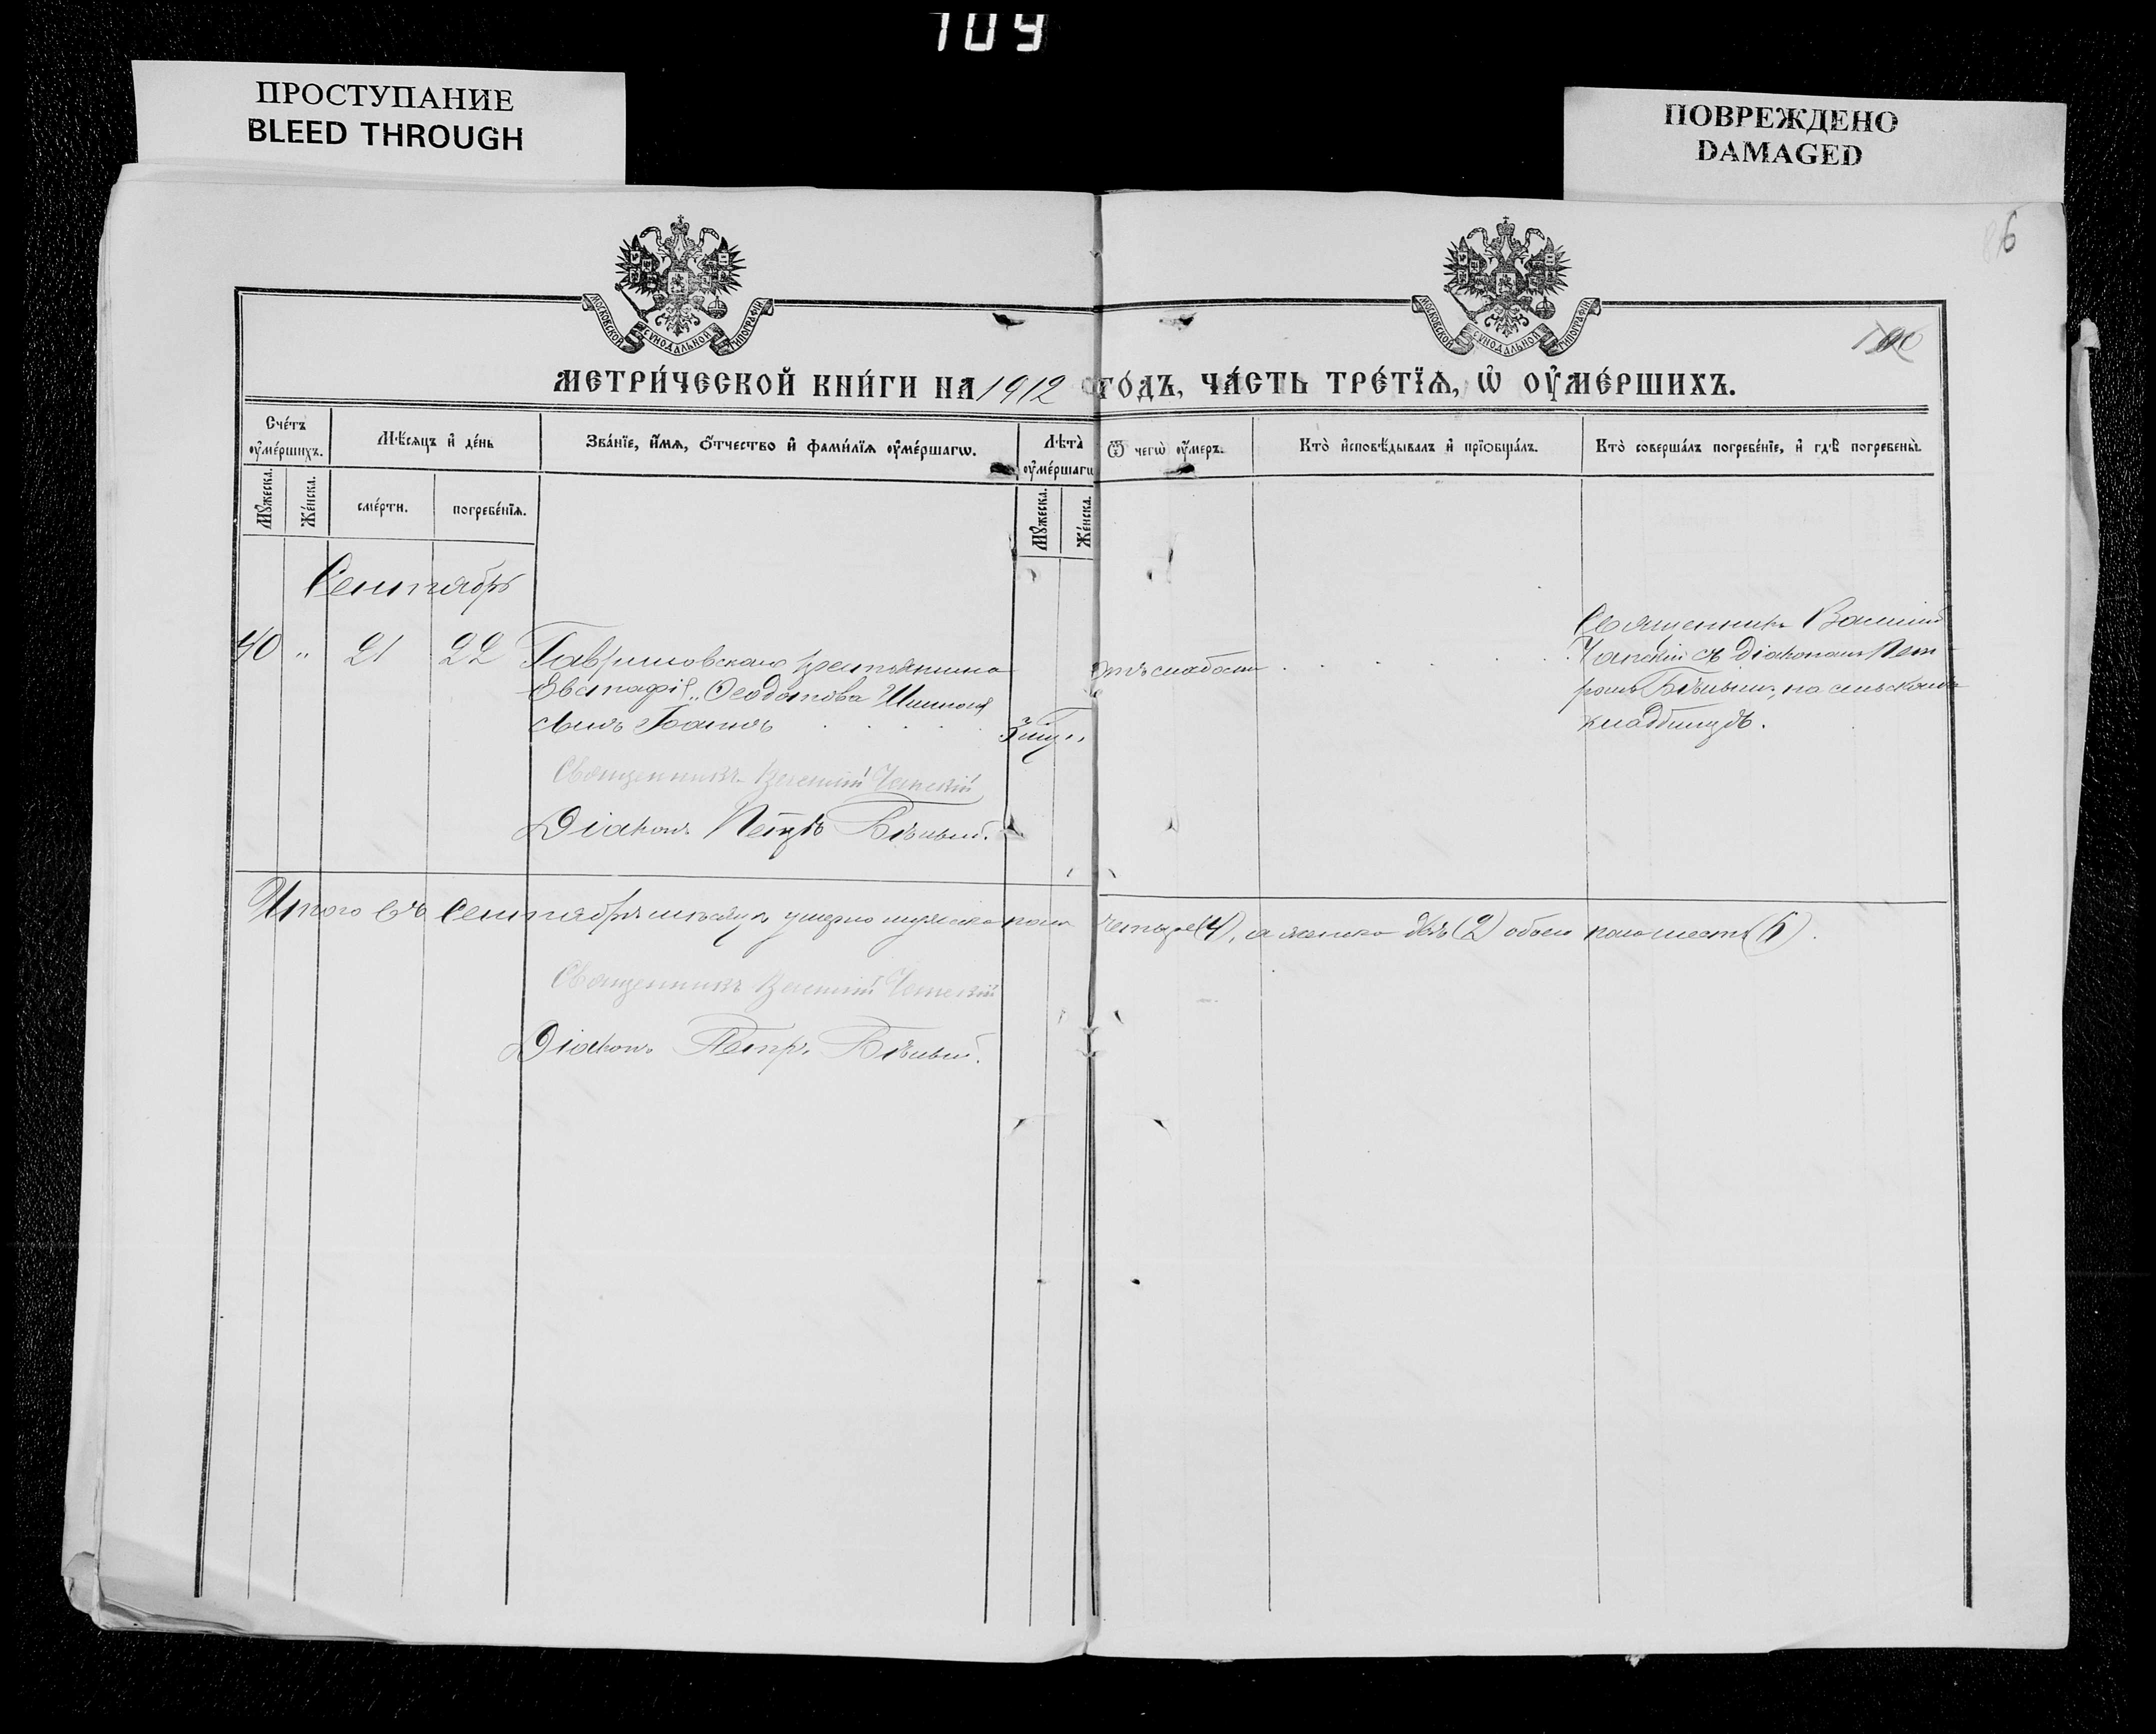 109
ПРОСТУПАНИЕ
BLEED THROUGH
ПОВРЕЖДЕНО
DAMAGED
6
МОСКОВСКОЙ СУНОДАЛЬНОЙ ТИПОГРАФІИ
МОСКОВСКОЙ СУНОДАЛЬНОЙ ТИПОГРАФІИ
100
МЕТРИ́ЧЕСКОЙ КНИ́ГИ НА 1912 ГО́ДЪ, ЧА́СТЬ ТРЕ́ТЇѦ, Ѡ҆ ОУ҆МЕ́РШИХЪ.
Сче́тъ оу҆ме́ршихъ.
Мѣ́сѧцъ и҆ де́нь
Зва́нїе, и҆́мѧ, ѻ҆́тчество и҆ фами́лїѧ оу҆ме́ршагѡ.
Лѣта̀ оу҆ме́ршагѡ
Ѿ чегѡ̀ оу҆́меръ.
Кто̀ и҆сповѣ́дывалъ и҆ прїѡбща́лъ.
Кто̀ соверша́лъ погребе́нїе, и҆ гдѣ̀ погребены̀.
Мꙋ́жеска.
Же́нска.
сме́рти.
погребе́нїѧ.
Мꙋ́жеска.
Же́нска.
Сентябрь
40 " 21 22 Гавриловскаго крестьянина
Евстафія Ѳеодотова
сынъ Іоаннъ
3 "
отъ слабости
Священникъ Василій
Чапскій съ Діакономъ Пет
ромъ Бѣлымъ, на сельскомъ
кладбищѣ.
Священникъ Василій Чапскій
Діаконъ Петръ Бѣлый.
Итого въ Сентябрѣ мѣсяцѣ умерло мужеска пола четыре (4), а женска двѣ (2) обоего пола шесть (6).
Священникъ Василій Чапскій
Діаконъ Петръ Бѣлый.